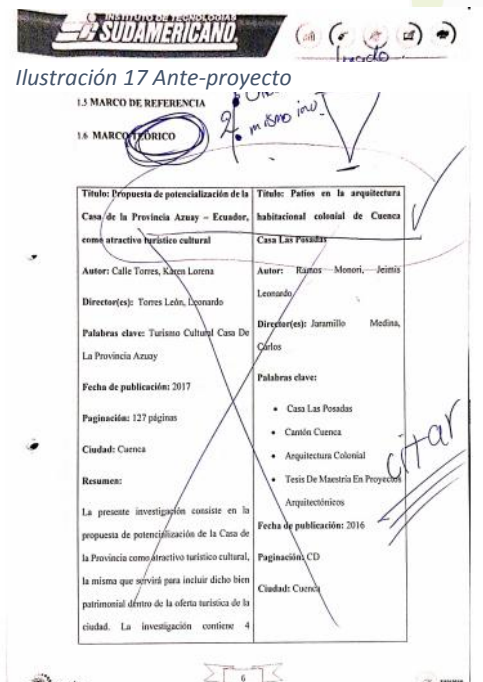 INSTITUTO DE TECNOLOGÍAS
SUDAMERICANO
Ilustración 17 Ante-proyecto
1.5 MARCO DE REFERENCIA
1.6 MARCO TEÓRICO
2
mismo
Título: Propuesta de potencialización de la
Casa de la Provincia Azuay – Ecuador,
como atractivo turístico cultural
Autor: Calle Torres, Karen Lorena
Director(es): Torres León, Leonardo
Palabras clave: Turismo Cultural Casa De
La Provincia Azuay
Fecha de publicación: 2017
Paginación: 127 páginas
Ciudad: Cuenca
Resumen:
La presente investigación consiste en la
propuesta de potencialización de la Casa de
la Provincia como atractivo turístico cultural,
la misma que servirá para incluir dicho bien
patrimonial dentro de la oferta turística de la
ciudad. La investigación contiene 4
Título: Patios en la arquitectura
habitacional colonial de Cuenca
Casa Las Posadas
Autor: Ramos Monori, Jeimis
Leonardo
Director(es): Jaramillo Medina,
Carlos
Palabras clave:
• Casa Las Posadas
• Cantón Cuenca
• Arquitectura Colonial
• Tesis De Maestría En Proyectos
Arquitectónicos
Fecha de publicación: 2016
Paginación: CD
Ciudad: Cuenca
citar
6